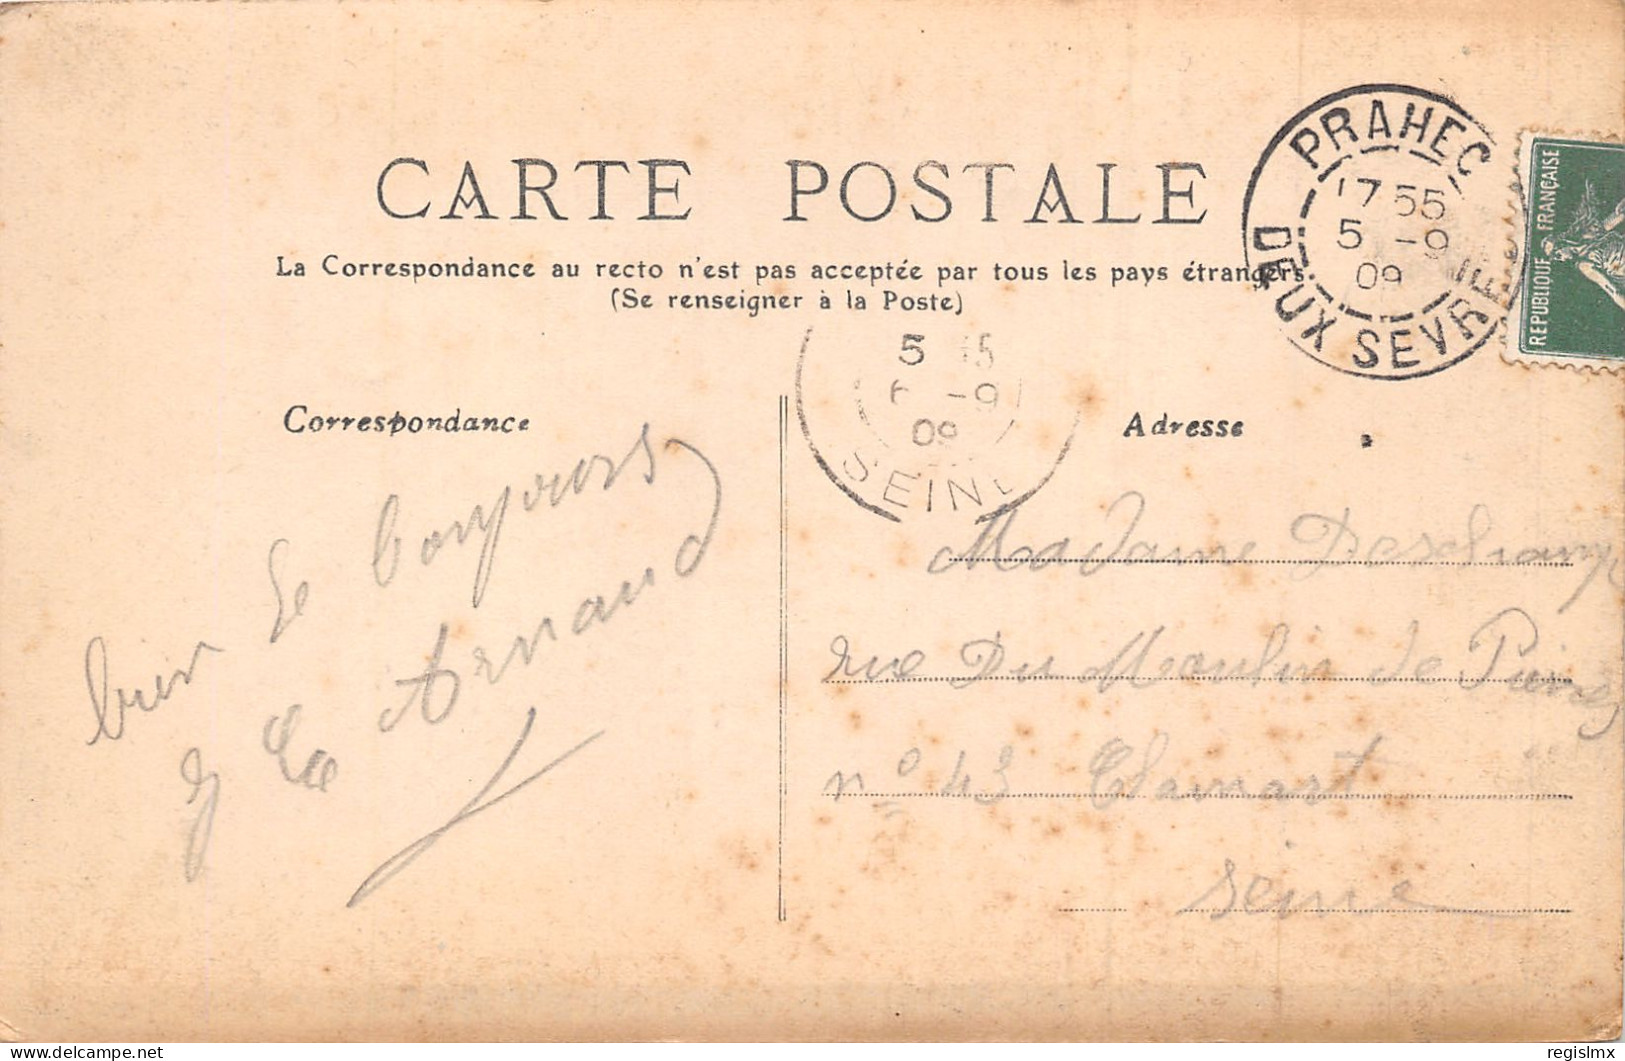 CARTE POSTALE
La Correspondance au recto n'est pas acceptée par tous les pays étrangers
(Se renseigner à la Poste)
PRAHECQ
17 55
5 -9
09
DEUX SEVRES
REPUBLIQUE FRANÇAISE
5 15
6 -9
09
SEINE
Correspondance
bien le bonjours
Arnaud
Adresse
Madame Deschamp
rue Du Moulin de Pierre
n° 43 Clamart
Seine
delcampe.net
regislmx